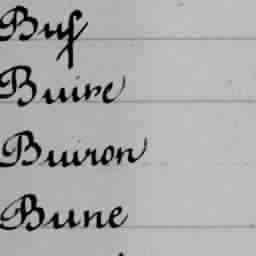 Buf
Buire
Buiron
Bune